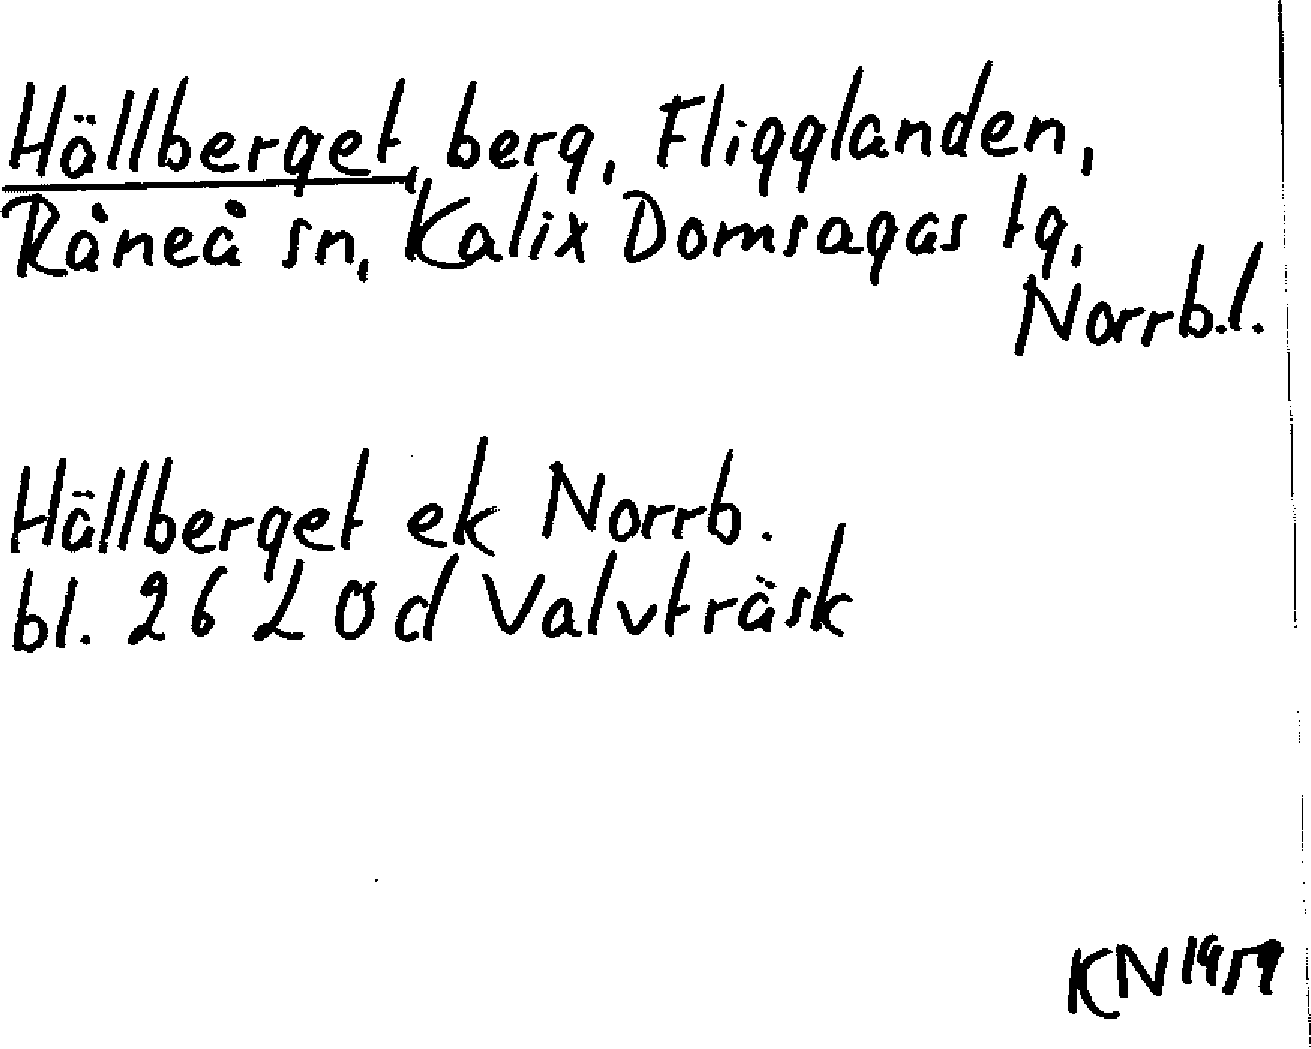 Hällberget, berg, Fligglanden,
Råneå sn, Kalix Domsagas tg,
Norrb.l.
Hällberget ek Norrb.
bl. 26 L 0d Valvträsk
KN 1959